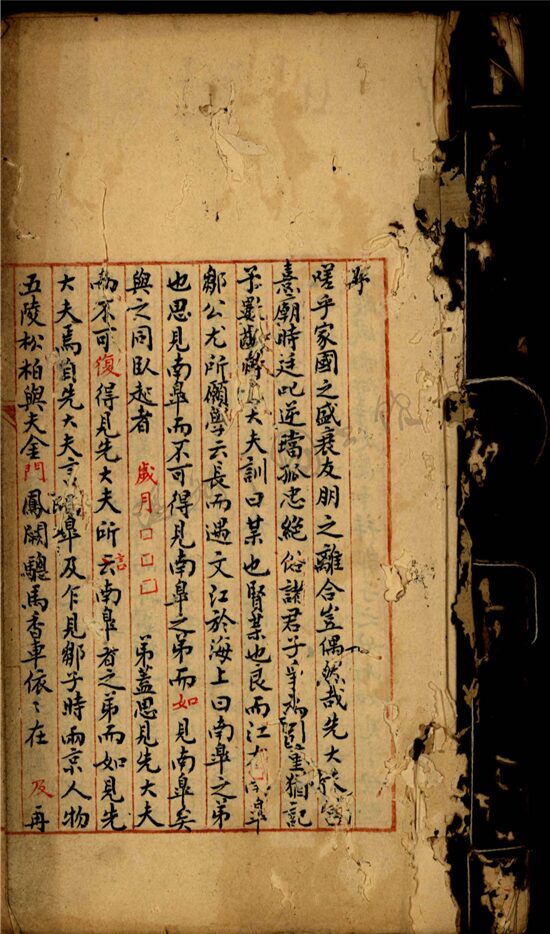 序
嗟乎家國之盛衰友朋之離合豈偶然哉先大夫
熹廟時廷叱逆璫孤忠絕俗諸君子
大夫訓曰某也賢某也良而江右
鄒公尤所願學云長而遇文江於海上曰南臯之弟
也思見南臯而不可得見南臯之弟而如見南臯矣
與之同臥起者歲月□□□弟蓋思見先大夫
而不可復得見先大夫所言云南臯者之弟而如見先
大夫焉自先大夫言南臯及乍見鄒子時兩京人物
五陵松柏與夫金門鳳闕驄馬香車依〻在及再